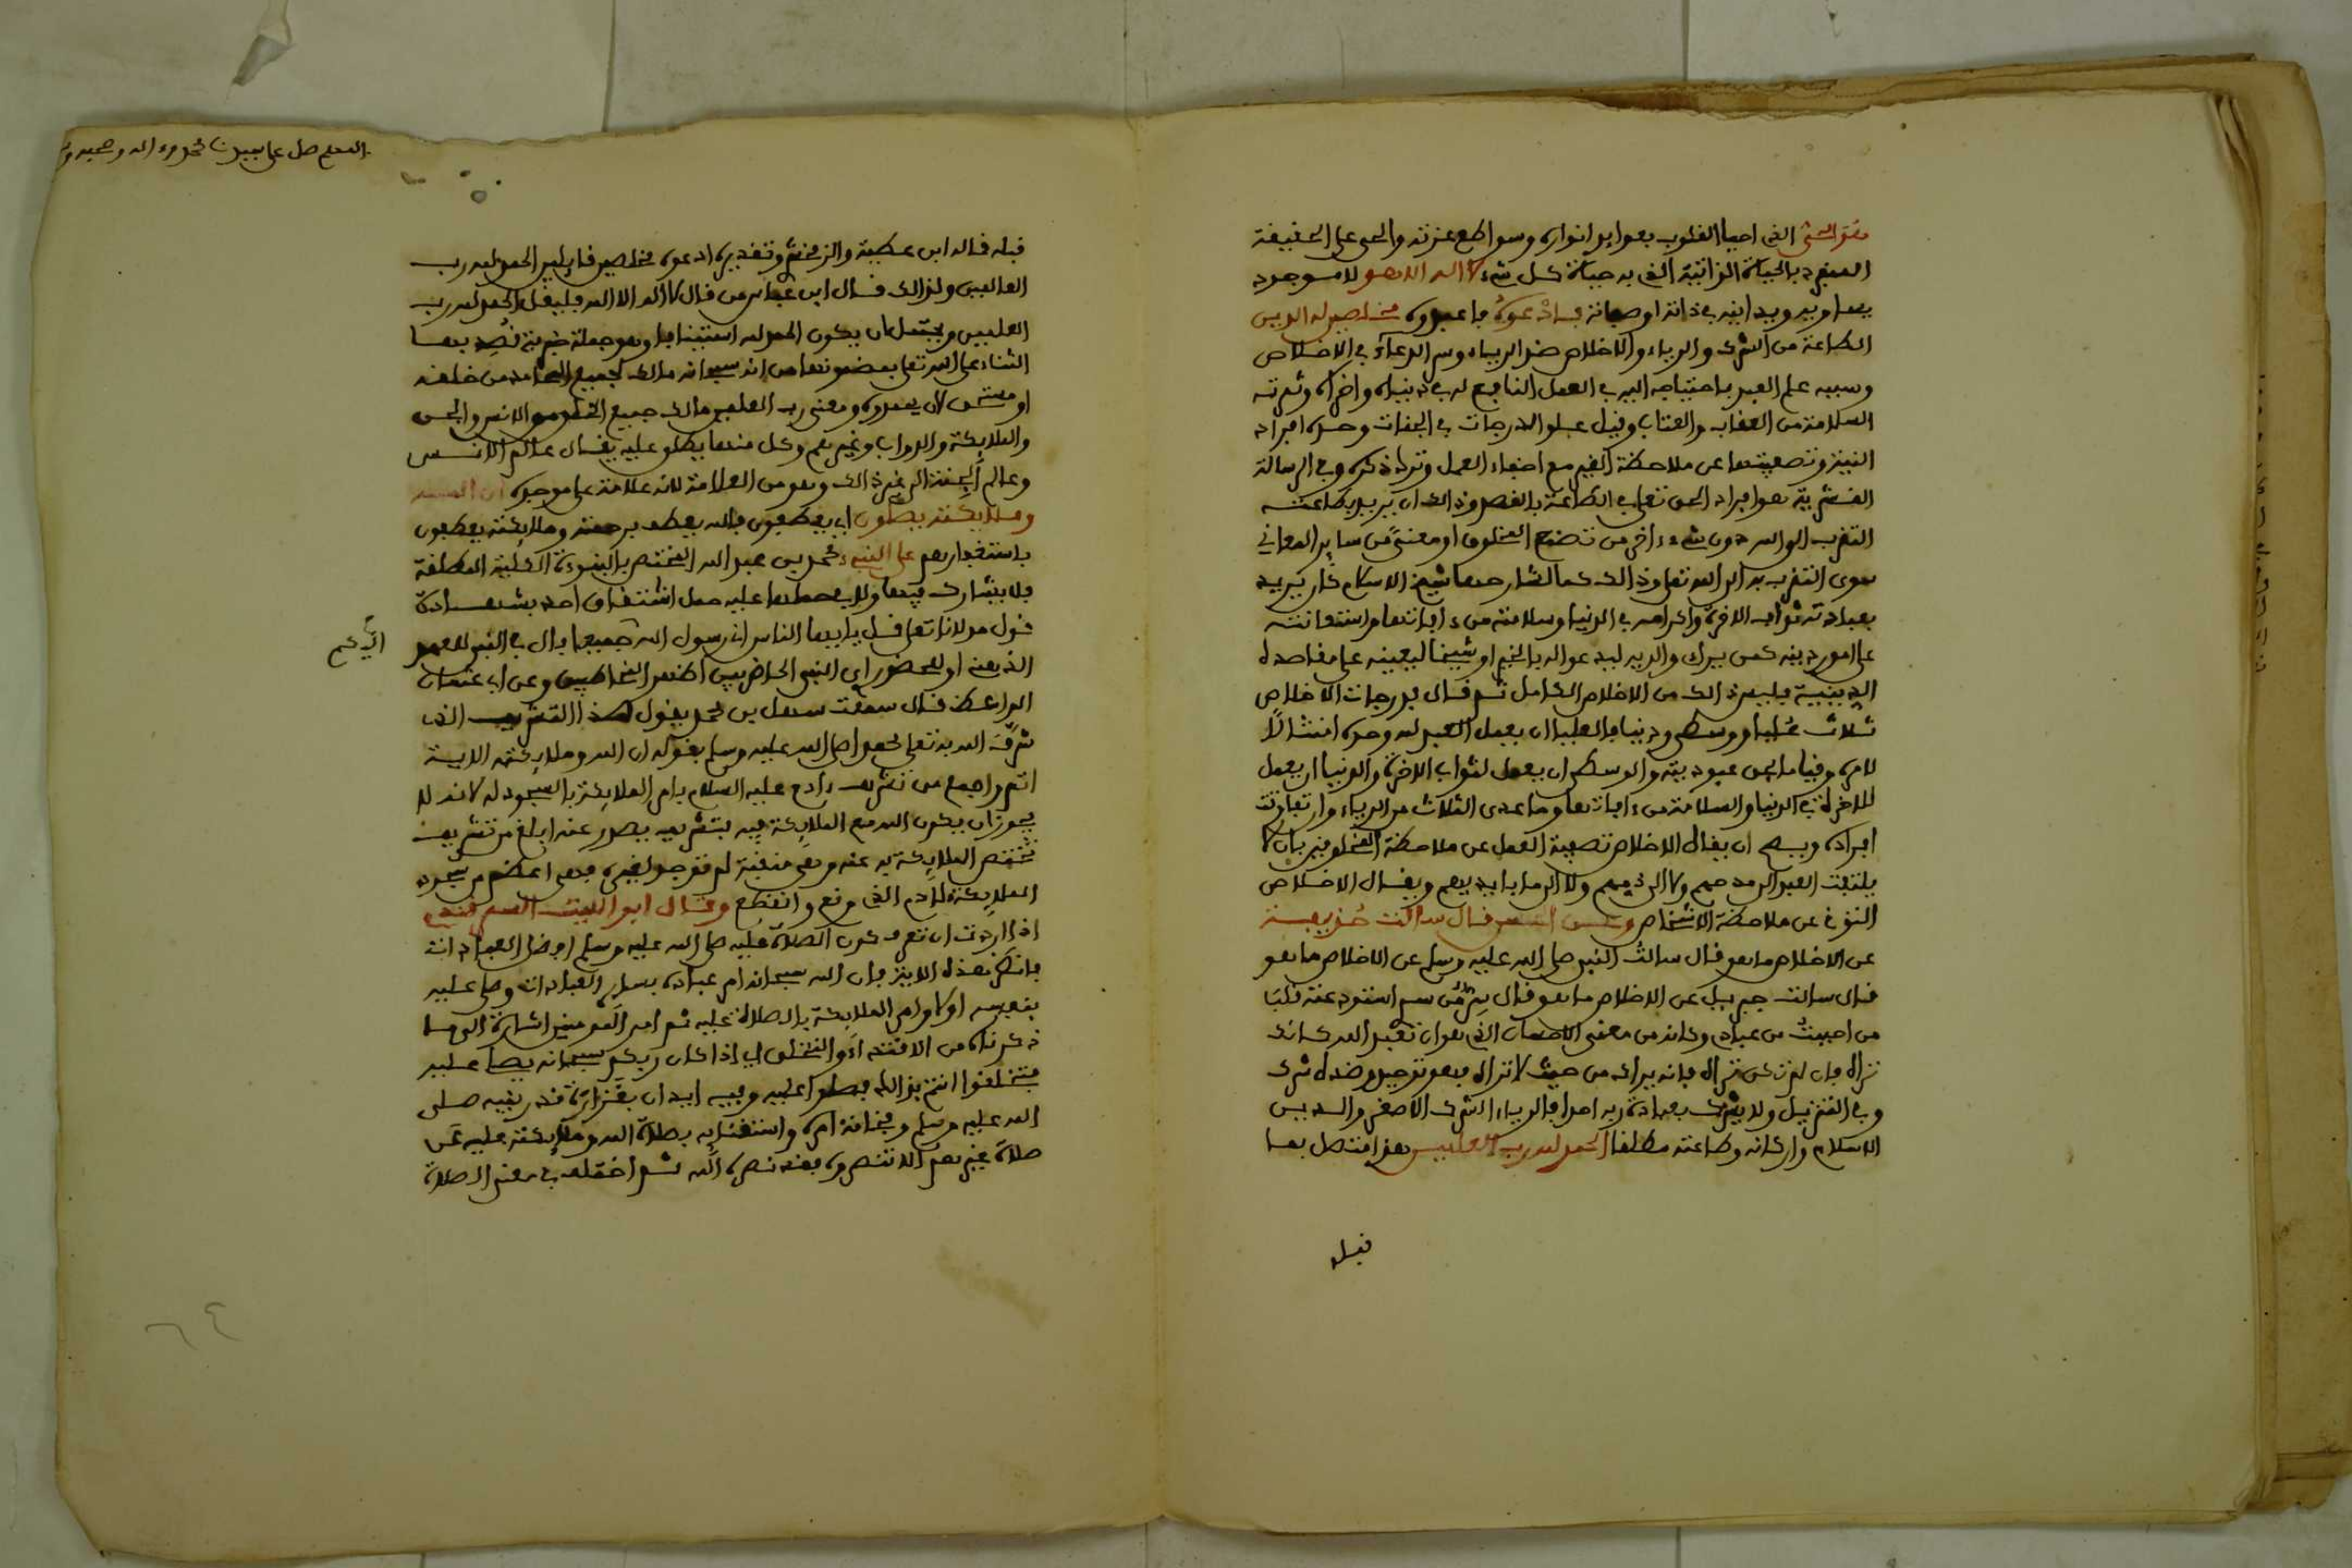 هو الحي الذي احيا القلوب بعوايد انواره وسواطع عزته والحي على الحقيقة
المنفرد بالحياة الذاتية الذي به حياة كل شيء لا اله الا هو لا موجود
يساويه ويدانيه في ذاته او صفاته فادعوه فاعبدوه مخلصين له الدين
الطاعة من الشرك والرياء والاخلاص ضد الرياء وسر الدعاء في الاخلاص
وسببه علم العبد باحتياجه اليه في العمل النافع له في دنياه واخراه وثمرته
السلامة من العقاب والعتاب ونيل علو الدرجات في الجنات وحده افراد
النية وتصفيتها عن ملاحظة الغير مع اخفاء العمل وترك ذكره وفي الرسالة
القشيرية هو افراد الحق تعلى في الطاعة بالقصد وذالك ان يريد بطاعته
التقرب الى الله دون شيء ءاخر من تصنع لمخلوق او معنى من ساير المعاني
سوى التقرب به الى الله تعلى وذالك كما اشار شيخ الاسلام كان يريد
بعبادته ثواب الاخرة واكرامه في الدنيا وسلامته من ءافاتها واستعانته
على امور دينه كمن يبرك والديه ليدعوا له بالخير او شيخا ليعينه على مقاصده
الدينية فليس ذالك من الاخلاص الكامل ثم قال فدرجات الاخلاص
ثلاث عليا ووسطى ودنيا فالعليا ان يعمل العبد لله وحده امتثالا
لامره وقياما بحق عبوديته والوسطى ان يعمل لثواب الاخرة والدنيا ان يعمل
للاكرام في الدنيا والسلامة من ءافاتها وما عدى الثلاث من الرياء وان تفاوتت
افراده ويصح ان يقال الاخلاص تصفية العمل عن ملاحظة المخلوقين بان لا
يلتفت العبد الى مدحهم ولا الى ذمهم ولا الى ما بايديهم ويقال الاخلاص
التوقي عن ملاحظة الاشخاص وعن الحسن قال سالت حذيفة
عن الاخلاص ما هو قال سالت النبي صلى الله عليه وسلم عن الاخلاص ما هو
قال سالت جبريل عن الاخلاص ما هو قال سر من سري استودعته قلب
من احببت من عبادي وكانه من معنى الاحسان الذي هو ان تعبد الله كانك
تراه فان لم تكن تراه فانه يراك من حيث لا تراه فهو توحيد وضده شرك
وفي التنزيل ولا يشرك بعبادة ربه احدا فالرياء الشرك الاصغر والدين
الاسلام واركانه وطاعته مطلقا الحمد لله رب العلمين هو متصل بما
قبله
اللهم صل على سيدنا محمد وءاله وصحبه
قبله قاله ابن عطية والزمخشري وتقديره ادعوه مخلصين قايلين الحمد لله رب
العالمين ولذالك قال ابن عباس من قال لا اله الا الله فليقل الحمد لله رب
العلمين ويحتمل ان يكون الحمد لله استينافا وهو جملة خبرية قصد بها
الثناء على الله تعلى بمضمونها من انه سبحانه مالك لجميع المحامد من خلقه
او مستحق لان يعبدوه ومعنى رب العلمين مالك جميع الخلق من الانس والجن
والملايكة والدواب وغيرهم وكل منها يطلق عليه يقال عالم الانس
وعالم الجن الى غير ذالك وهو من العلامة لانه علامة على موجده ان الله
وملايكته يصلون اي يعطفون فالله يعطف برحمته وملايكته يعطفون
باستغفارهم على النبيء محمد بن عبد الله المختص بالنبوءة الكلية المطلقة
فلا يشارك فيها وال محملها عليه حمل اشتقاق احد بشهادة
قول مولانا تعلى قل يايها الناس اني رسول الله اليكم جميعا فال في النبي للعهد
الذهني او للحضور اي النبي الحاضر بين اظهر المخاطبين وعن ابي عثمان
الواعظ قال سمعت سهل بن محمد يقول هذا التشريف الذي
شرف الله به تعلى محمدا صلى الله عليه وسلم بقوله ان الله وملايكته الاية
اتم واجمع من تشريف ءادم عليه السلام بامر الملايكة بالسجود له لانه لا
يجوز ان يكون الله مع الملايكة فيه فتشريف يصدر عنه ابلغ من تشريف
تختص الملايكة به عنه وهي منقبة لم توجد لغيره فهي اعظم من سجود
الملايكة لادم الذي وقع وانقطع وقال ابو الليث السمرقندي
اذا اردت ان تعرف كون الصلاة عليه صلى الله عليه وسلم افضل العبادات
فانظر هذه الاية فان الله سبحانه امر عباده بساير العبادات وصلى عليه
بنفسه اولا وامر الملايكة بالصلاة عليه ثم امر المومنين اشارة الى ما
ذكرناه من الاقتداء والتخلق اي اذا كان ربكم سبحانه يصلي عليه
فتخلقوا انتم بذالك فصلوا عليه وفيه ايذان بغزارة قدر نبيه صلى
الله عليه وسلم وفخامة امره واستغنايه بصلاة الله وملايكته عليه عن
صلاة غيرهم الا تنصروه فقد نصره الله ثم اختلف في معنى الصلاة
اليكم
٦٤